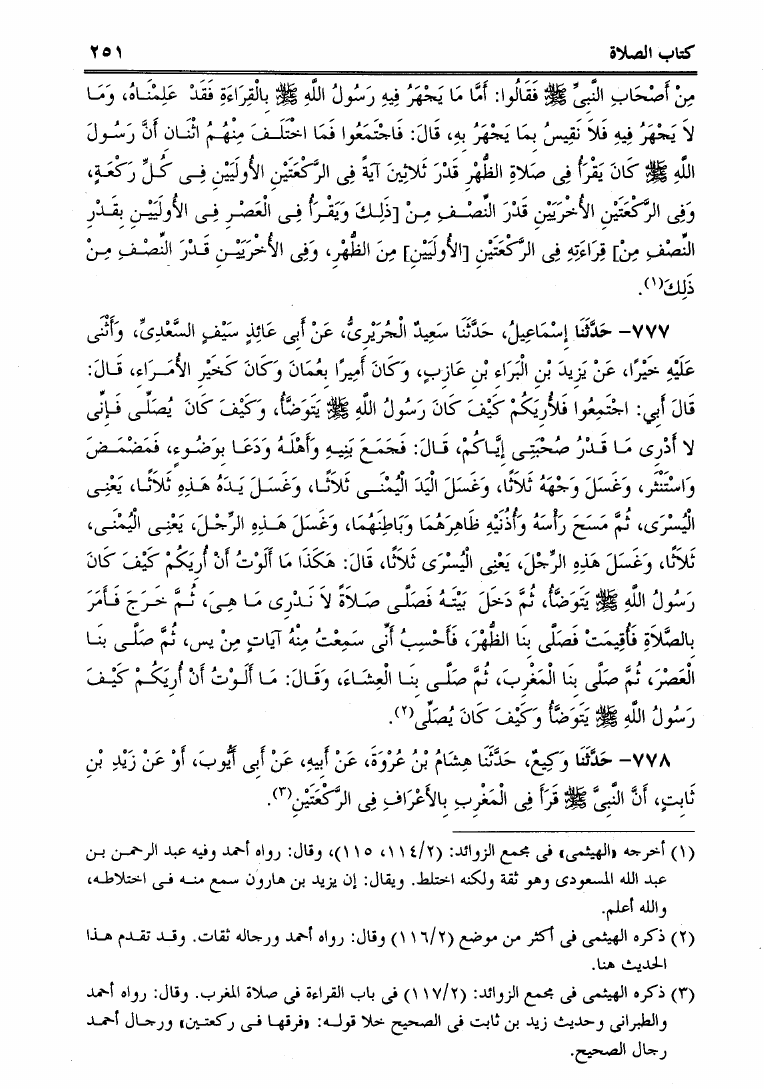 كتاب الصلاة ٢٥١
مِنْ أَصْحَابِ النَّبِيِّ ﷺ فَقَالُوا: أَمَّا مَا يَجْهَرُ فِيهِ رَسُولُ اللَّهِ ﷺ بِالْقِرَاءَةِ فَقَدْ عَلِمْنَاهُ، وَمَا
لاَ يَجْهَرُ فِيهِ فَلاَ نَقِيسُ بِمَا يَجْهَرُ بِهِ، قَالَ: فَاجْتَمَعُوا فَمَا اخْتَلَفَ مِنْهُمُ اثْنَانِ أَنَّ رَسُولَ
اللَّهِ ﷺ كَانَ يَقْرَأُ فِى صَلاَةِ الظُّهْرِ قَدْرَ ثَلاَثِينَ آيَةً فِى الرَّكْعَتَيْنِ الأُولَيَيْنِ فِى كُلِّ رَكْعَةٍ،
وَفِى الرَّكْعَتَيْنِ الأُخْرَيَيْنِ قَدْرَ النِّصْفِ مِنْ [ذَلِكَ وَيَقْرَأُ فِى الْعَصْرِ فِى الأُولَيَيْنِ بِقَدْرِ
النِّصْفِ مِنْ] قِرَاءَتِهِ فِى الرَّكْعَتَيْنِ [الأُولَيَيْنِ] مِنَ الظُّهْرِ، وَفِى الأُخْرَيَيْنِ قَدْرَ النِّصْفِ مِنْ
ذَلِكَ(١).
٧٧٧– حَدَّثَنَا إِسْمَاعِيلُ، حَدَّثَنَا سَعِيدٌ الْجُرَيْرِىُّ، عَنْ أَبِى عَائِذٍ سَيْفٍ السَّعْدِىِّ، وَأَثْنَى
عَلَيْهِ خَيْرًا، عَنْ يَزِيدَ بْنِ الْبَرَاءِ بْنِ عَازِبٍ، وَكَانَ أَمِيرًا بِعُمَانَ وَكَانَ كَخَيْرِ الأُمَرَاءِ، قَالَ:
قَالَ أَبِي: اجْتَمِعُوا فَلأُرِيَكُمْ كَيْفَ كَانَ رَسُولُ اللَّهِ ﷺ يَتَوَضَّأُ، وَكَيْفَ كَانَ يُصَلِّى فَإِنِّى
لا أَدْرِى مَا قَدْرُ صُحْبَتِى إِيَّاكُمْ، قَالَ: فَجَمَعَ بَنِيهِ وَأَهْلَهُ وَدَعَا بِوَضُوءٍ، فَمَضْمَضَ
وَاسْتَنْثَرَ، وَغَسَلَ وَجْهَهُ ثَلاَثًا، وَغَسَلَ الْيَدَ الْيُمْنَى ثَلاَثًا، وَغَسَلَ يَدَهُ هَذِهِ ثَلاَثًا، يَعْنِى
الْيُسْرَى، ثُمَّ مَسَحَ رَأْسَهُ وَأُذُنَيْهِ ظَاهِرَهُمَا وَبَاطِنَهُمَا، وَغَسَلَ هَذِهِ الرِّجْلَ، يَعْنِى الْيُمْنَى،
ثَلاَثًا، وَغَسَلَ هَذِهِ الرِّجْلَ، يَعْنِى الْيُسْرَى ثَلاَثًا، قَالَ: هَكَذَا مَا أَلَوْتُ أَنْ أُرِيَكُمْ كَيْفَ كَانَ
رَسُولُ اللَّهِ ﷺ يَتَوَضَّأُ، ثُمَّ دَخَلَ بَيْتَهُ فَصَلَّى صَلاَةً لاَ نَدْرِى مَا هِىَ، ثُمَّ خَرَجَ فَأَمَرَ
بِالصَّلاَةِ فَأُقِيمَتْ فَصَلَّى بِنَا الظُّهْرَ، فَأَحْسِبُ أَنِّى سَمِعْتُ مِنْهُ آيَاتٍ مِنْ يس، ثُمَّ صَلَّى بِنَا
الْعَصْرَ، ثُمَّ صَلَّى بِنَا الْمَغْرِبَ، ثُمَّ صَلَّى بِنَا الْعِشَاءَ، وَقَالَ: مَا أَلَوْتُ أَنْ أُرِيَكُمْ كَيْفَ
رَسُولُ اللَّهِ ﷺ يَتَوَضَّأُ وَكَيْفَ كَانَ يُصَلِّى(٢).
٧٧٨– حَدَّثَنَا وَكِيعٌ، حَدَّثَنَا هِشَامُ بْنُ عُرْوَةَ، عَنْ أَبِيهِ، عَنْ أَبِى أَيُّوبَ، أَوْ عَنْ زَيْدِ بْنِ
ثَابِتٍ، أَنَّ النَّبِىَّ ﷺ قَرَأَ فِى الْمَغْرِبِ بِالأَعْرَافِ فِى الرَّكْعَتَيْنِ(٣).
(١) أخرجه «الهيثمى» فى مجمع الزوائد: (١١٤/٢، ١١٥)، وقال: رواه أحمد وفيه عبد الرحمن بن
عبد الله المسعودى وهو ثقة ولكنه اختلط. ويقال: إن يزيد بن هارون سمع منه فى اختلاطه،
والله أعلم.
(٢) ذكره الهيثمى فى أكثر من موضع (١١٦/٢) وقال: رواه أحمد ورجاله ثقات. وقد تقدم هذا
الحديث هنا.
(٣) ذكره الهيثمى فى مجمع الزوائد: (١١٧/٢) فى باب القراءة فى صلاة المغرب. وقال: رواه أحمد
والطبرانى وحديث زيد بن ثابت فى الصحيح خلا قوله: «فرقها فى ركعتين» ورجال أحمد
رجال الصحيح.